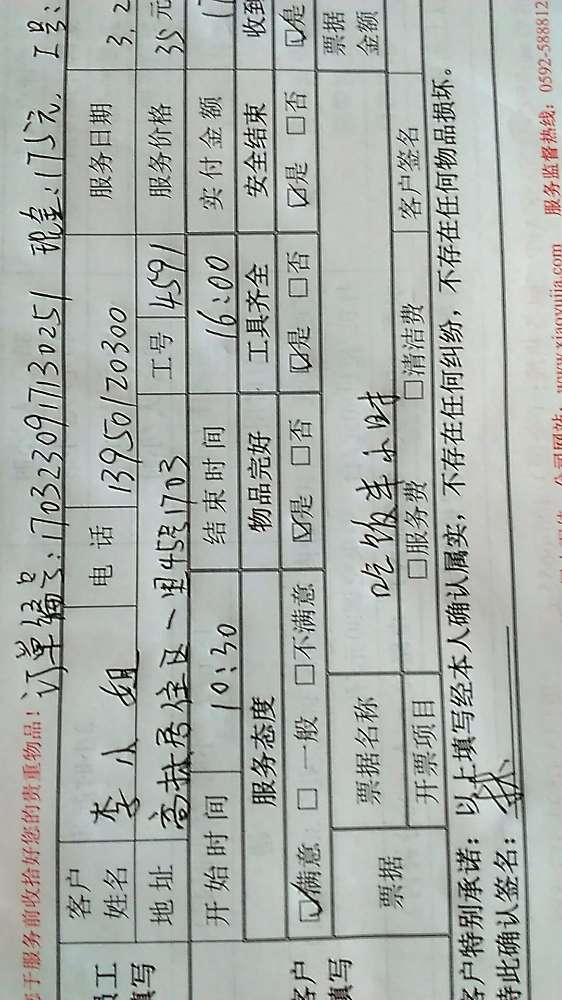 您于服务前收拾好您的贵重物品! 订单编号:1703230917130251 现金:175元. 工号:
员工填写
客户姓名 李小姐 电话 13950120300 服务日期 3.2
地址 高林居住区一里45号1703 工号 4591 服务价格 35元
开始时间 10:30 结束时间 16:00 实付金额 17
客户填写
服务态度 物品完好 工具齐全 安全结束 收到
☑满意 □一般 □不满意 ☑是 □否 ☑是 □否 ☑是 □否 ☑是
票据 票据名称 吃饭半小时 票据金额
开票项目 □服务费 □清洁费 客户签名
客户特别承诺: 以上填写经本人确认属实,不存在任何纠纷,不存在任何物品损坏.
特此确认签名:
公司网站: www.xiaoyujia.com 服务监督热线: 0592-588812